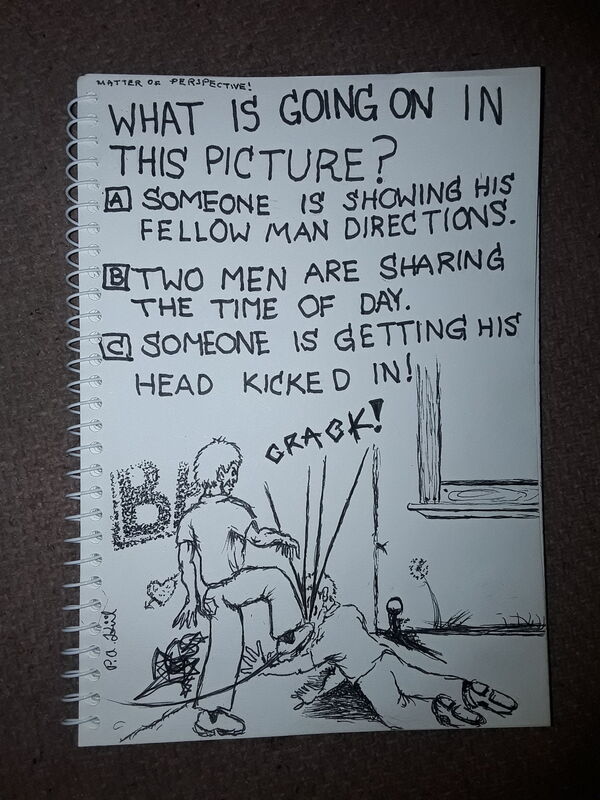 MATTER OF PERSPECTIVE!
WHAT IS GOING ON IN
THIS PICTURE?
A SOMEONE IS SHOWING HIS
FELLOW MAN DIRECTIONS.
B TWO MEN ARE SHARING
THE TIME OF DAY.
C SOMEONE IS GETTING HIS
HEAD KICKED IN!
CRACK!
P.A.